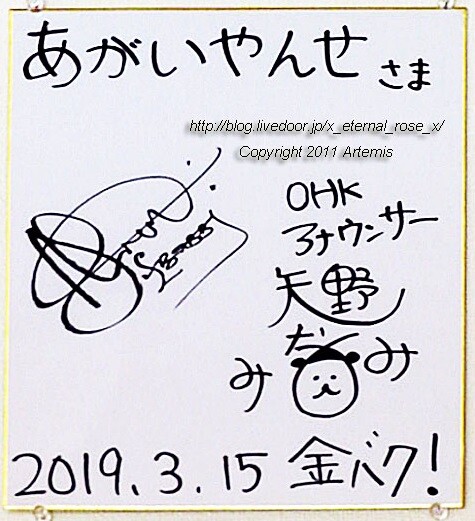 あがいやんせ さま
http://blog.livedoor.jp/x_eternal_rose_x/
Copyright 2011 Artemis
OHK
アナウンサー
矢野
み
み
2019.3.15 金バク!